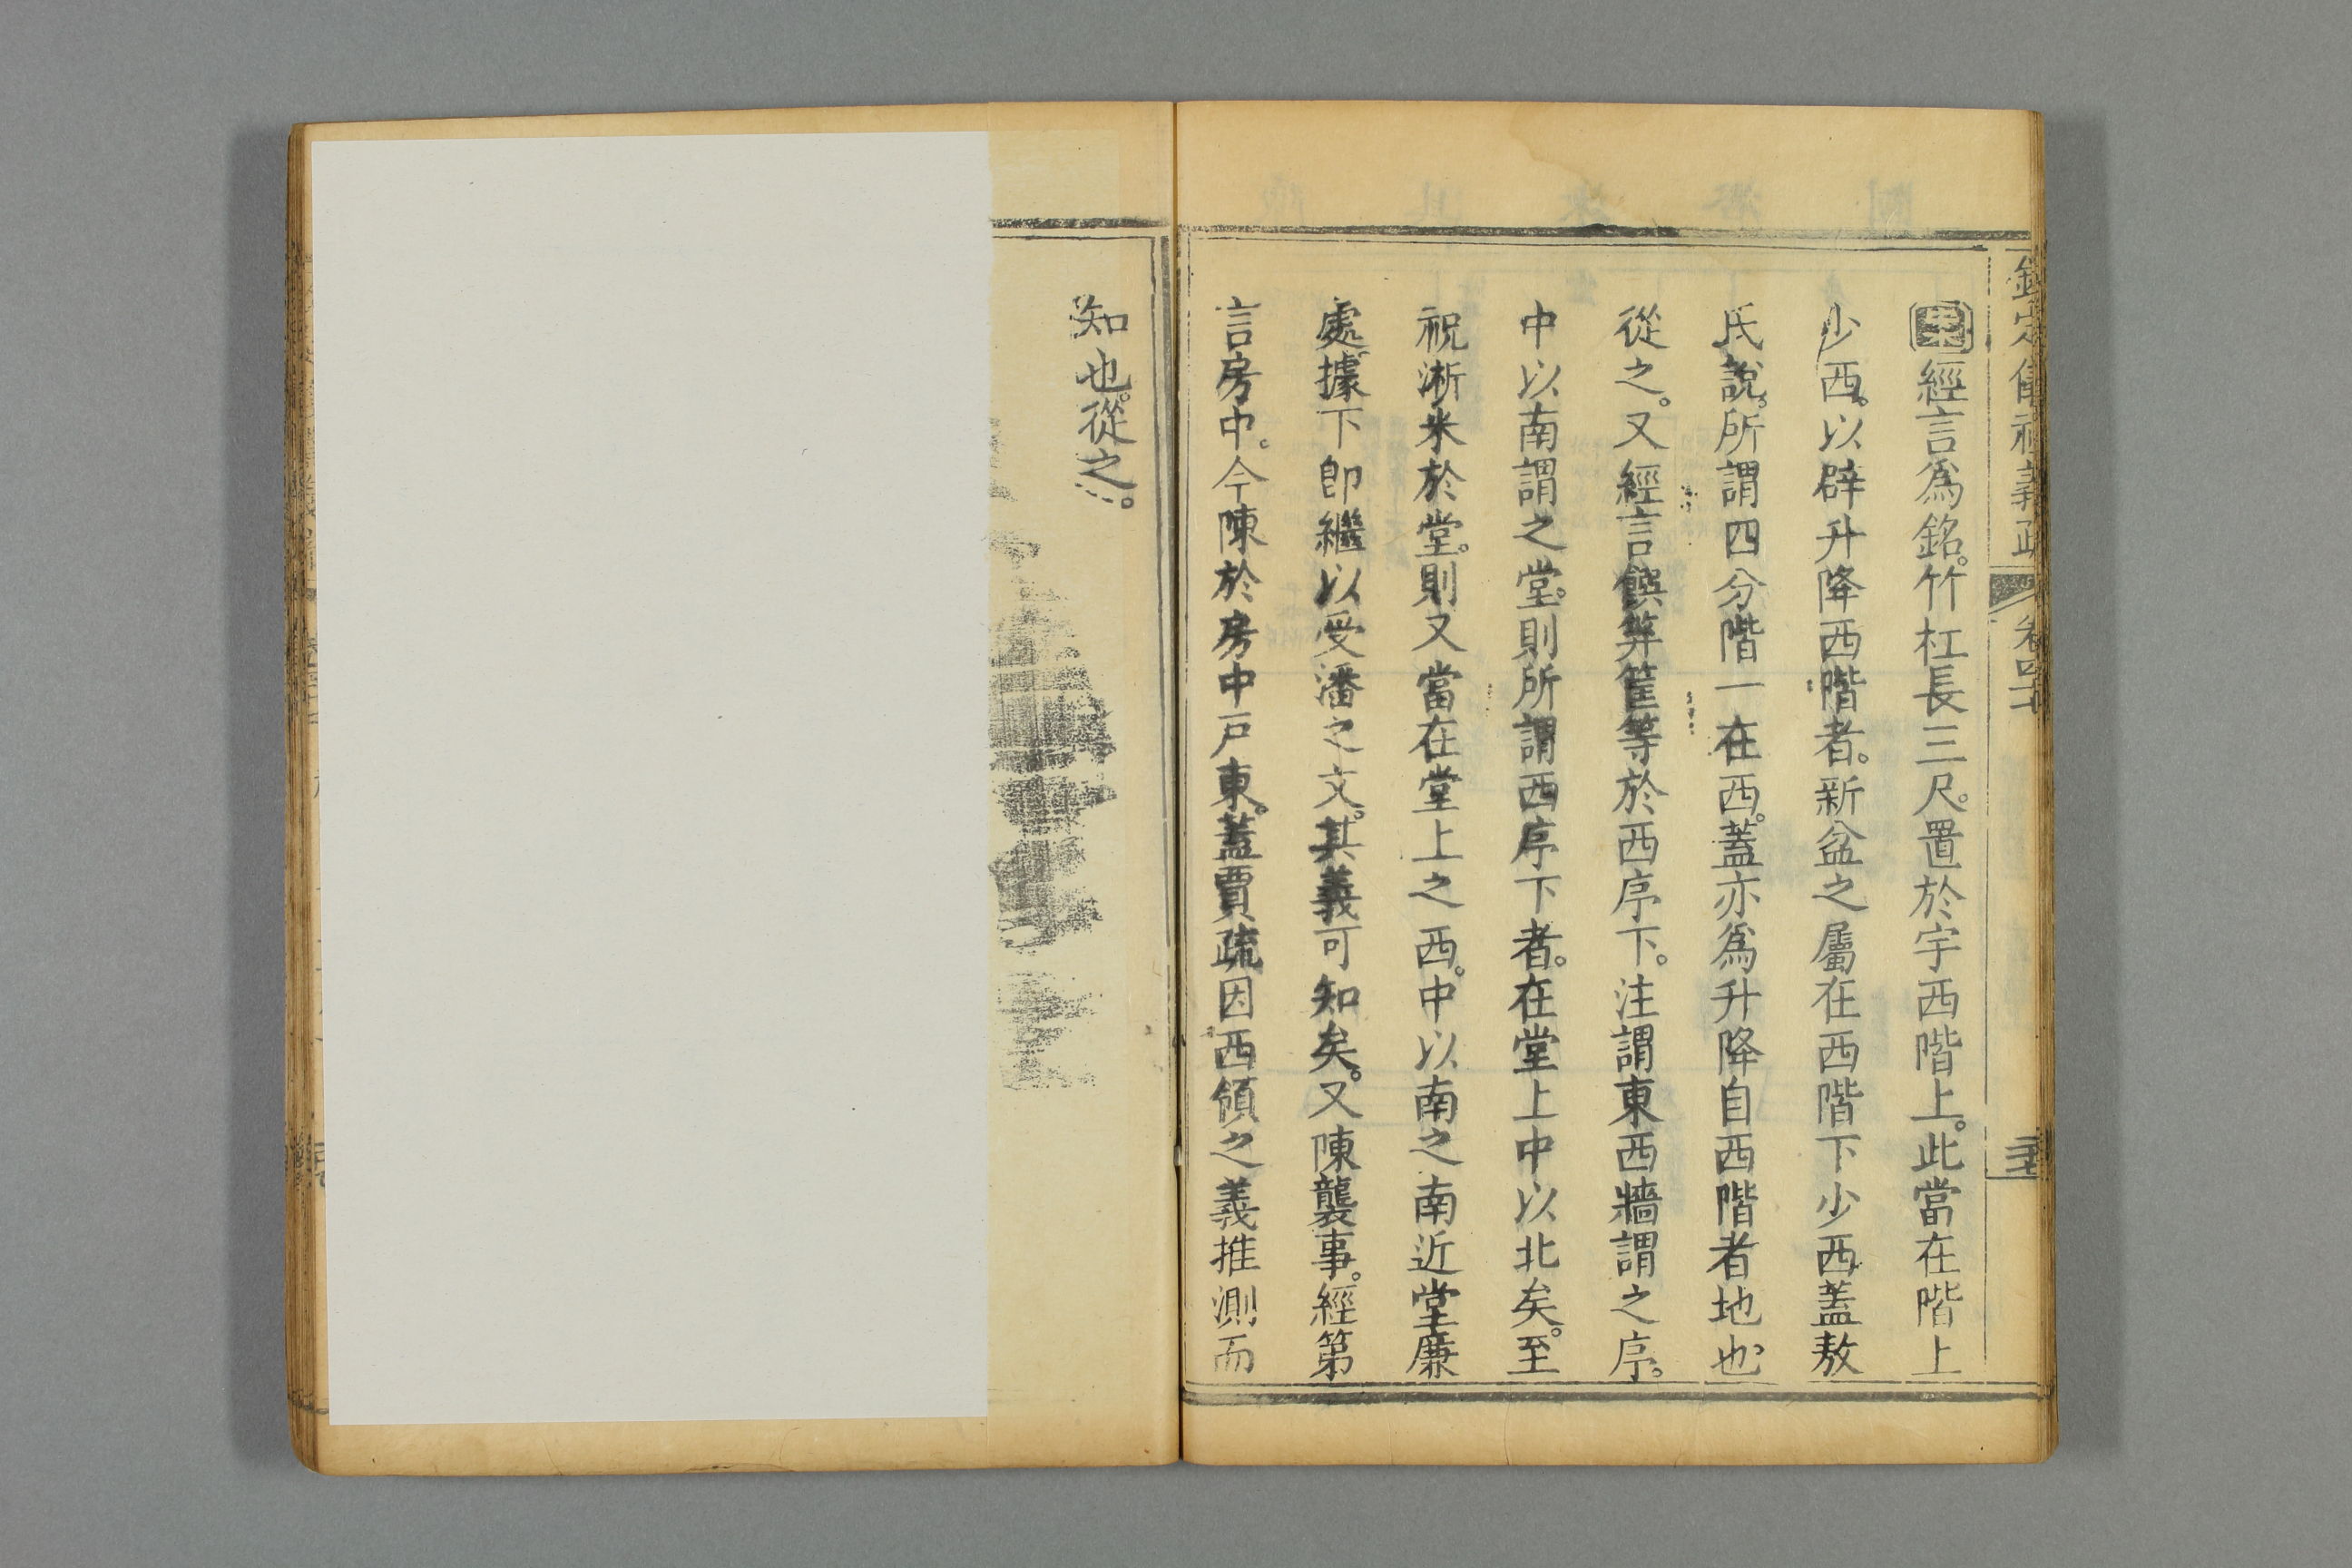 經言爲銘。竹杠長三尺。置於宇西階上。此當在階上
少西。以辟升降西階者。新盆之屬在西階下少西蓋敖
氏說。所謂四分階一在西。蓋亦爲升降自西階者地也
從之。又經言饌笲筐等於西序下。注謂東西牆謂之序。
中以南謂之堂。則所謂西序下者。在堂上中以北矣。至
祝淅米於堂。則又當在堂上之西。中以南之南近堂廉
處。據下卽繼以受潘之文。其義可知矣。又陳襲事。經第
言房中。今陳於房中戸東。蓋賈疏因西領之義推測而
知也。從之。